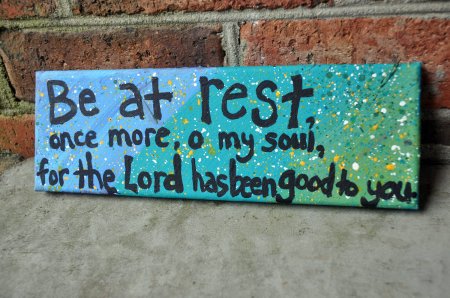 Be at rest,
once more, o my soul,
for the Lord has been good to you.